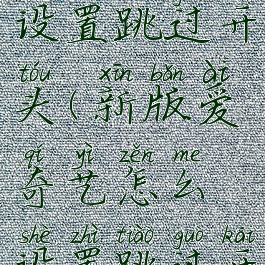 设置跳过开
tóu xīn bǎn ài
头(新版爱
qí yì zěn me
奇艺怎么
shè zhì tiào guò kāi
设置跳过开